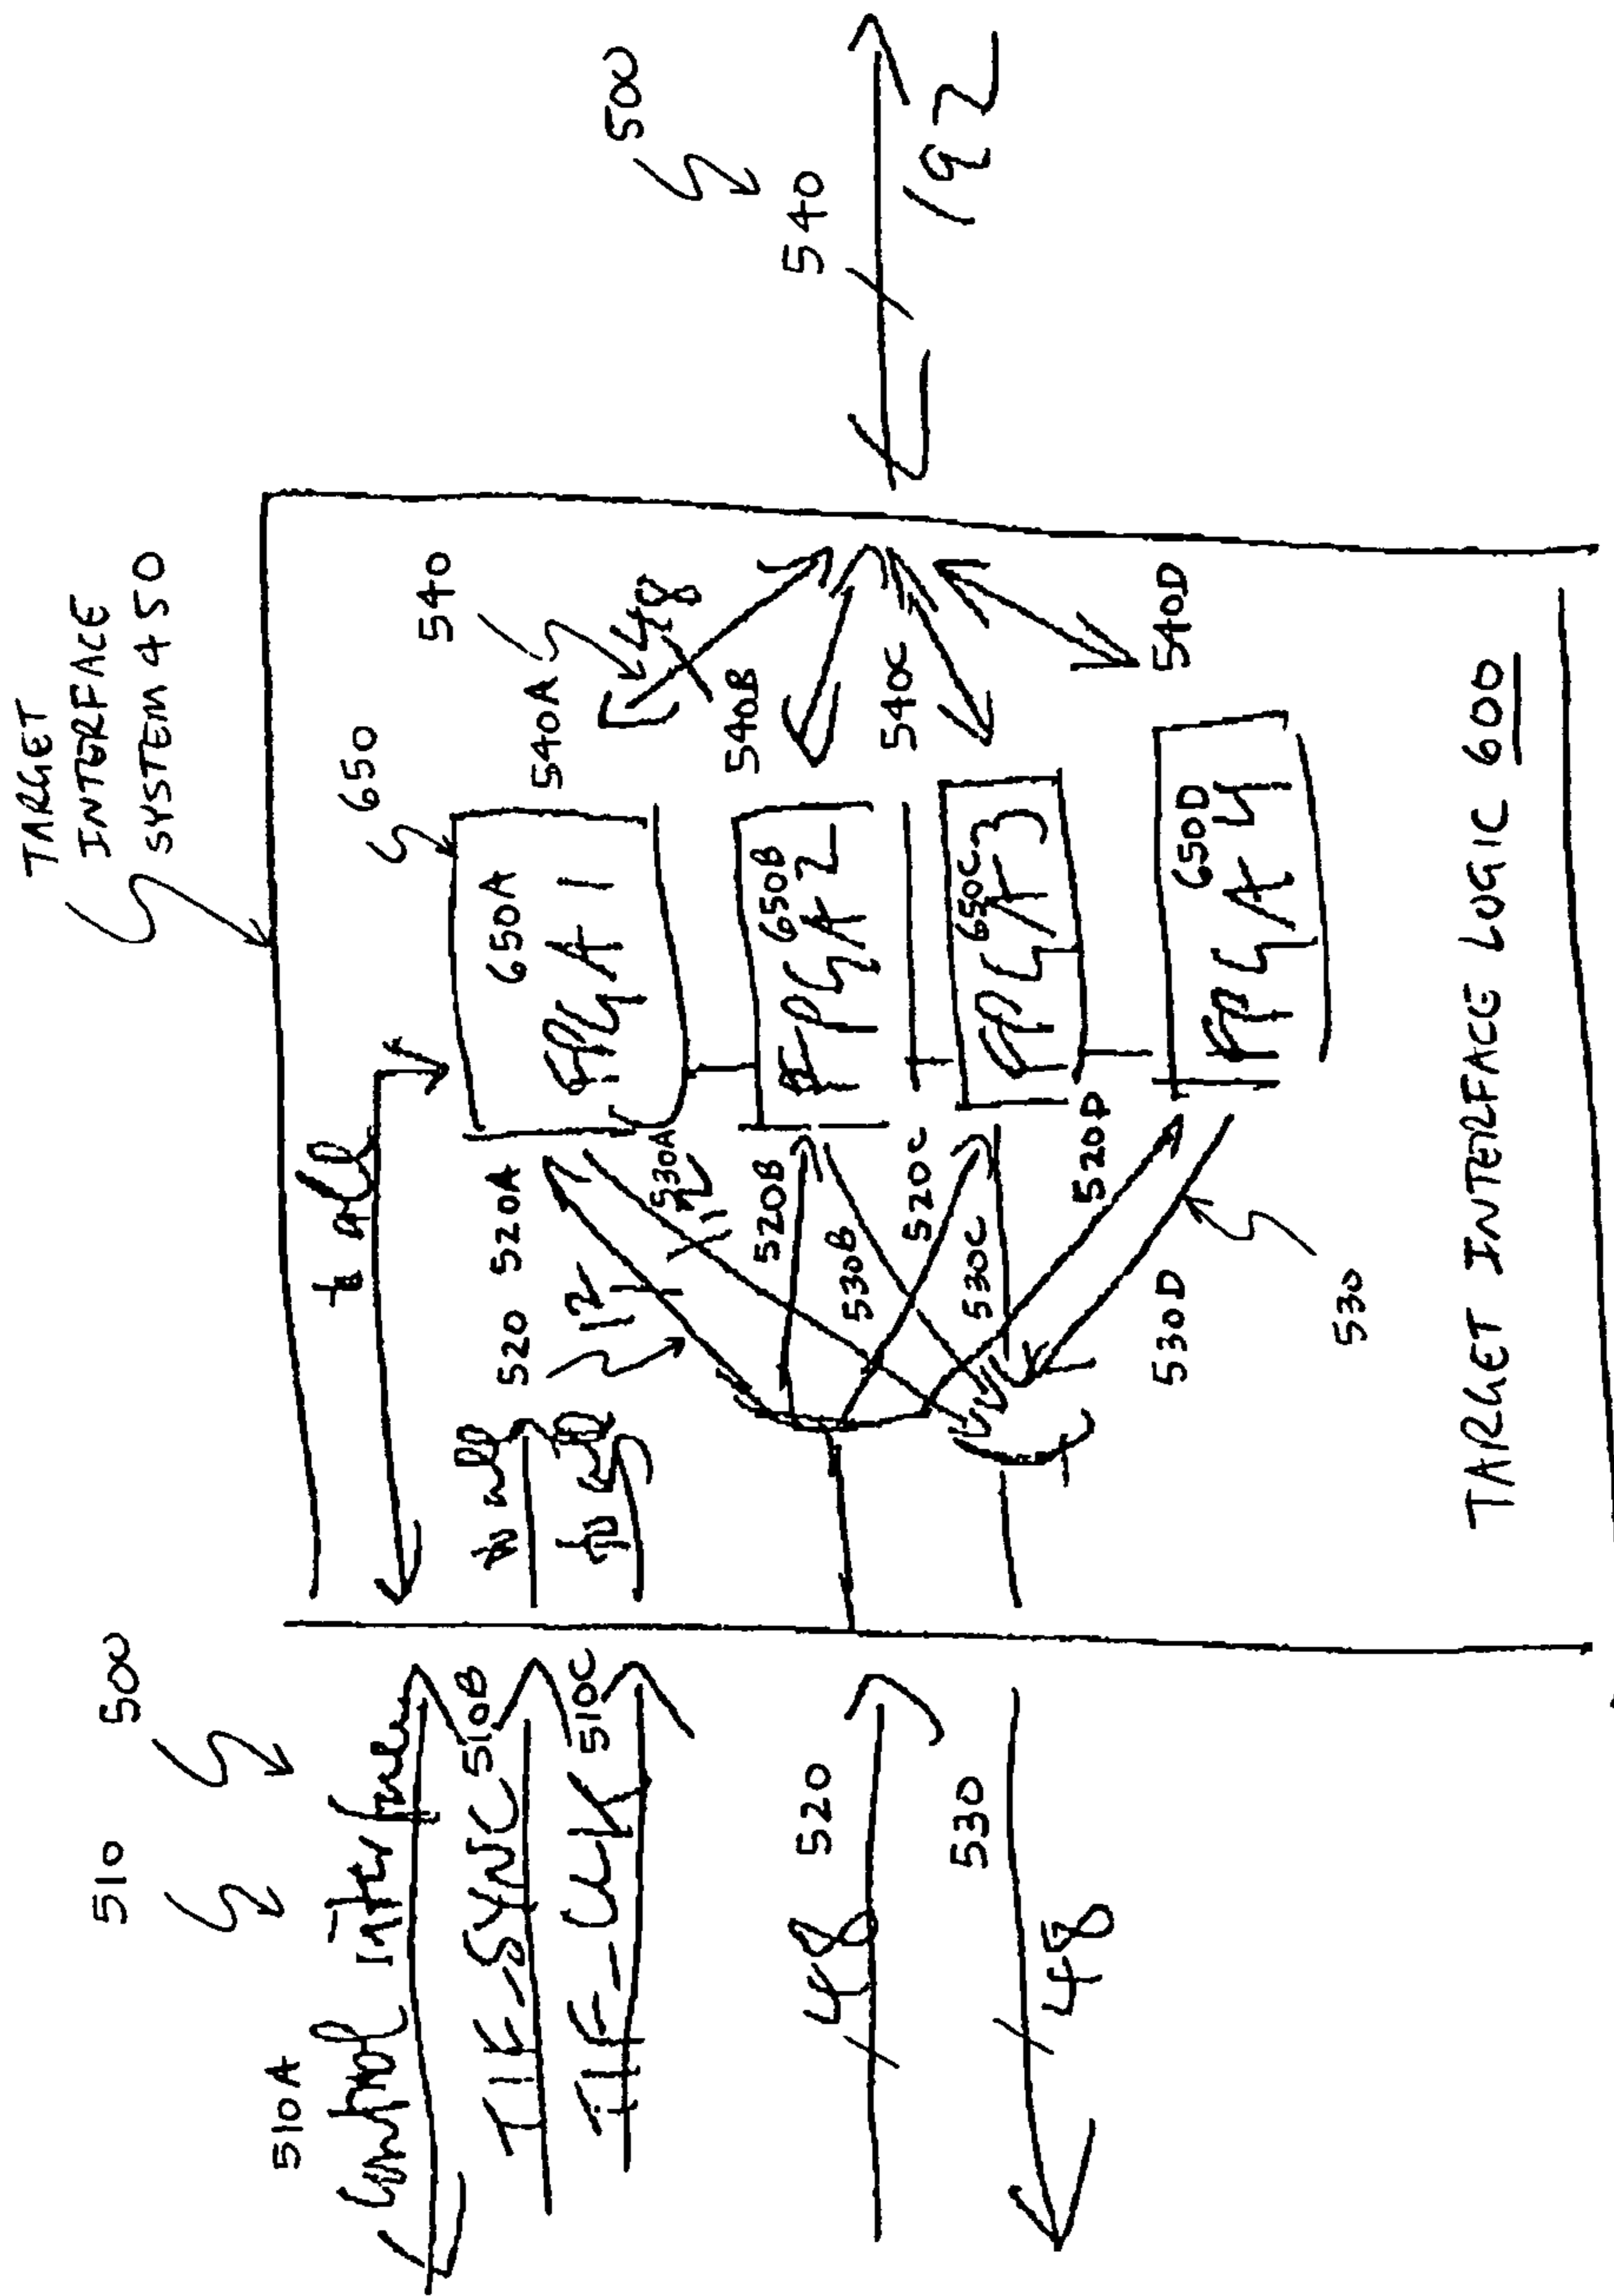 TARGET
INTERFACE
SYSTEM 450
510
500
510A
Control Interface
to all
TIF_SYNC 510B
to all
TIF_CLK 510C
to all
520
48
530
48
520
520A
12
530A
12
520B
530B
520C
530C
520D
530D
530
650
650A
FPGA 1
650B
FPGA 2
650C
FPGA 3
650D
FPGA 4
540
540A
48
540B
540C
540D
500
540
192
TARGET INTERFACE LOGIC 600